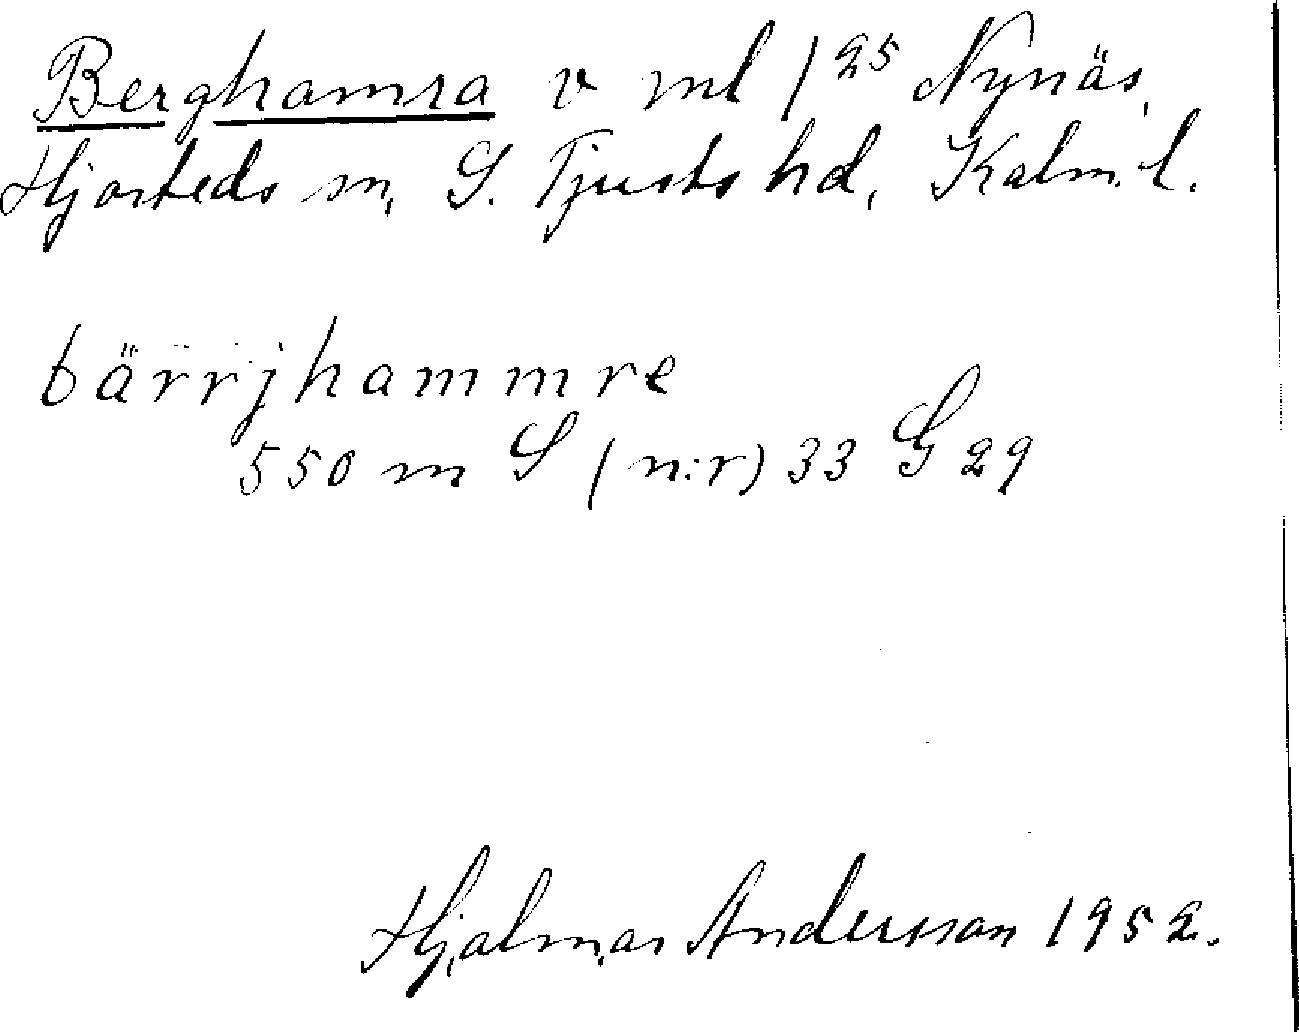 Berghamra v ml 1²⁵ Nynäs,
Hjorteds sn, S. Tjusts hd, Kalm. l.
bärrjhammre
550 m S (n:r) 33 G 29
Hjalmar Andersson 1952.